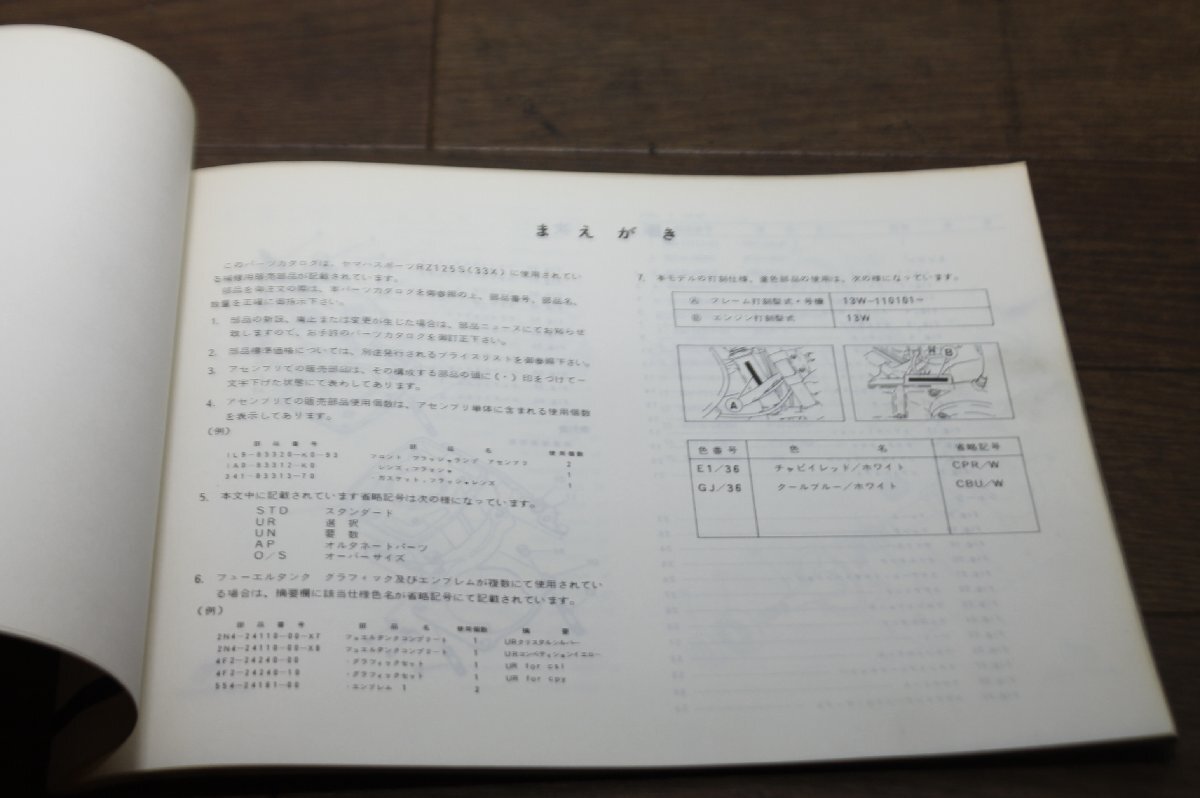 まえがき
このパーツカタログは、ヤマハスポーツRZ125S(33X)に使用されてい
る補修用販売部品が記載されています。
部品を御注文の際は、本パーツカタログを御参照の上、部品番号、部品名、
数量を正確に御指示下さい。
1. 部品の新設、廃止または変更が生じた場合は、部品ニュースにてお知らせ
致しますので、お手許のパーツカタログを御訂正下さい。
2. 部品標準価格については、別途発行されるプライスリストを御参照下さい。
3. アセンブリでの販売部品は、その構成する部品の頭に(・)印をつけて一
文字下げた状態にて表わしてあります。
4. アセンブリでの販売部品使用個数は、アセンブリ単体に含まれる使用個数
を表示してあります。
(例)
部品番号 部品名 使用個数
フロント フラッシャランプ アセンブリ 2
1A0-83312-K0 ・レンズ,フラッシャ 1
341-83313-70 ・ガスケット,フラッシャレンズ 1
5. 本文中に記載されています省略記号は次の様になっています。
STD スタンダード
UR 選択
UN 要数
AP オルタネートパーツ
O/S オーバーサイズ
6. フューエルタンク グラフィック及びエンブレムが複数にて使用されてい
る場合は、摘要欄に該当仕様色名が省略記号にて記載されています。
(例)
部品番号 部品名 使用個数 摘要
2N4-24110-00-X7 フュエルタンクコンプリート 1 URクリスタルシルバー
2N4-24110-00-X8 フュエルタンクコンプリート 1 URコンペティションイエロー
4F2-24240-00 ・グラフィックセット 1 UR for csl
4F2-24240-10 ・グラフィックセット 1 UR for cpy
554-24161-00 ・エンブレム 1 2
7. 本モデルの打刻仕様、着色部品の使用は、次の様になっています。
Ⓐ フレーム打刻型式・号機 13W-110101~
Ⓑ エンジン打刻型式 13W
A
H B
色番号 色名 省略記号
E1/36 チャピイレッド/ホワイト CPR/W
GJ/36 クールブルー/ホワイト CBU/W